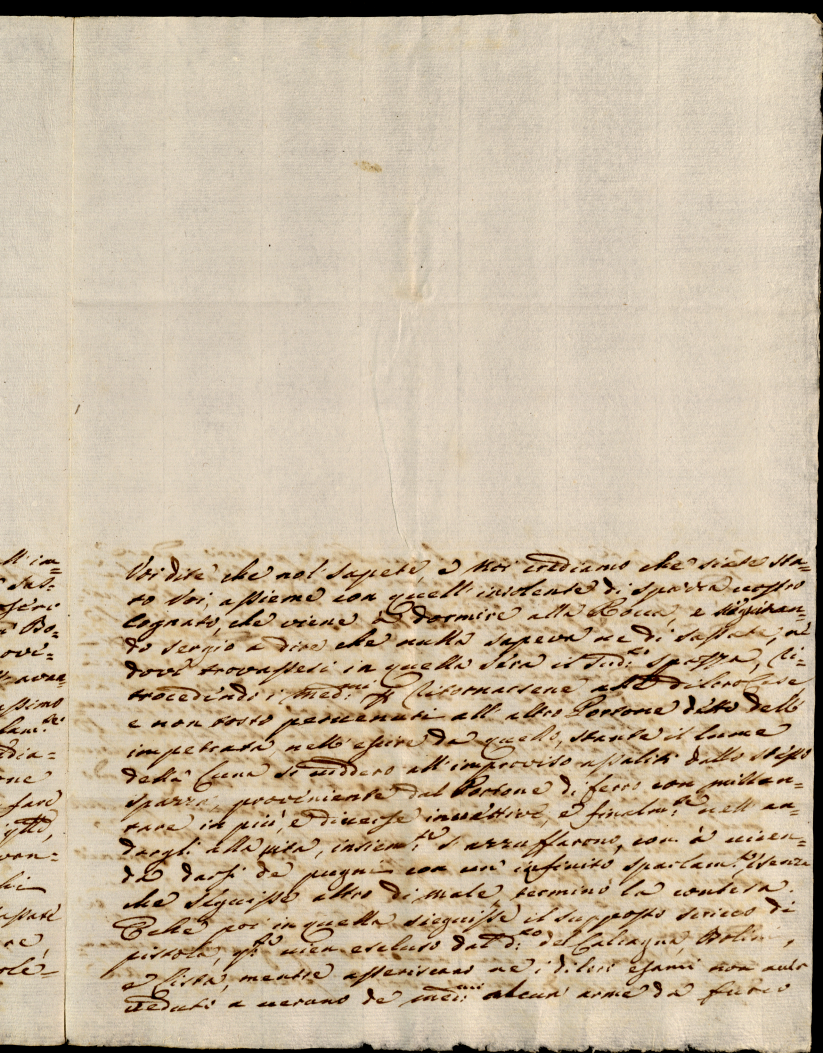 Voi dite che nol sapete, e Noi crediamo che siate sta=
to Voi, assieme con quell'insolente di spazza vostro
Cognato, che viene a dormire alla Rocca, e
do sergio a dire che nulla sapeva ne di sassate, ne
dove trovassesi in quella sera il Sud.to spazza,
trocedendi i med.mi p ritornarsene alle di loro Case
e non tosto pervenuti all'altro Portone detto dell'
impetrata nell'escire da quello, stante il lume
della Luna si viddero all'improviso assaliti dallo stesso
spazza, proviniente dal Portone di ferro con millan=
tare in più, e diverse invettive, e finalm.te nell'an=
dargli alla vita, insiem.te s'azzuffarono, con à vicen=
da darsi de pugni con un infinito sparlam.to, e senza
che seguisse altro di male, terminò la contesa.
E che poi in quella sieguisse il supposto scrico di
pistola, q.sto vien escluso dal d.to del Calcagna, Bolini,
e Cista, mentre asseriscono ne i di loro esami non aver
veduti a verano de med.mi alcun arme da fuoco
ll'im=
sas=
Bo=
ovi=
assimo
lam.te
dia=
one
fare
van=
assate
re,
ole=